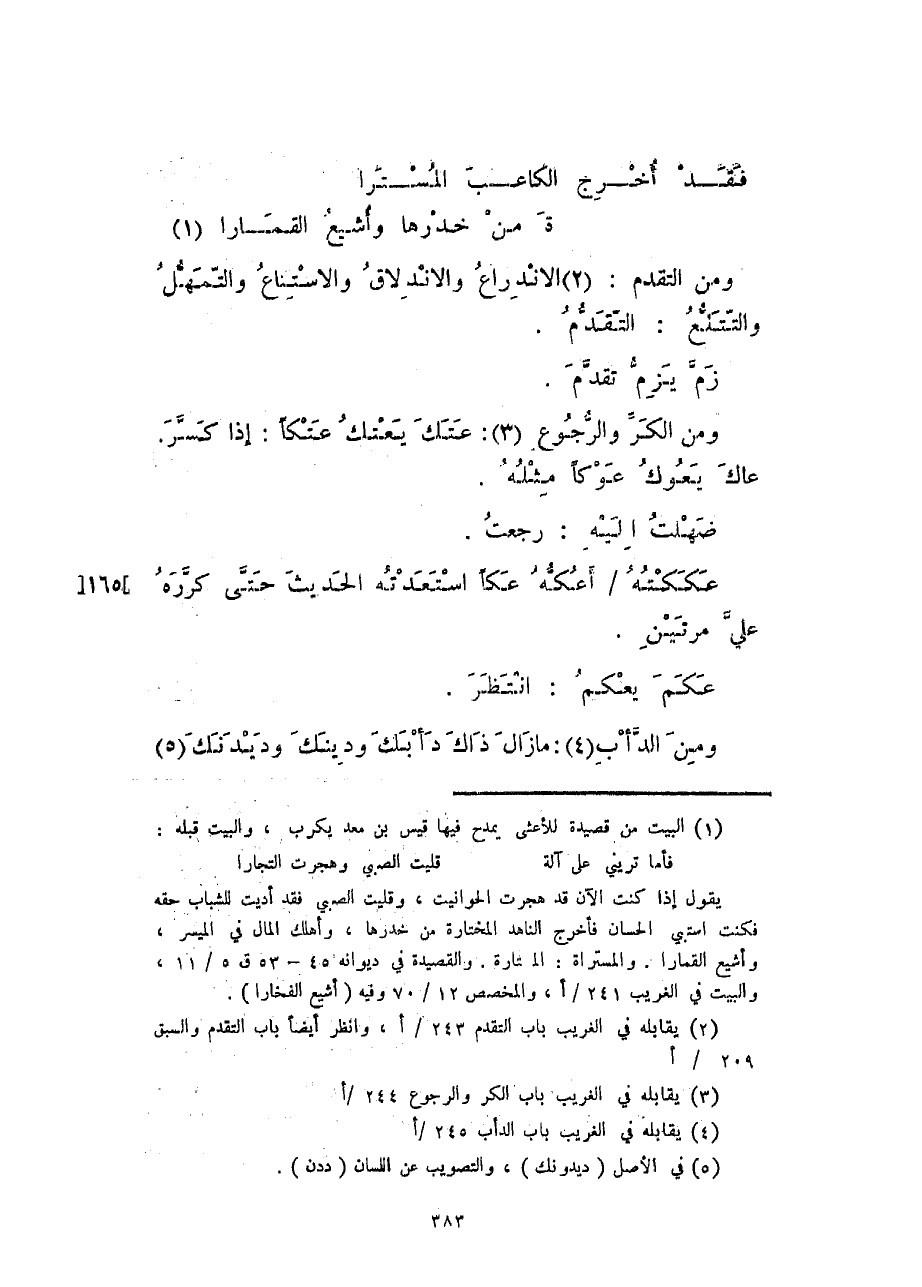 فَقَــدْ أُخْــرِج الكاعــبَ المُسْــتَرا
ةَ مِنْ خدْرِها وأُشيعُ القمَـارا (١)
ومن التقدم : (٢)الانْدِراعُ والانْدِلاقُ والاسْتِناعُ والتَّمَهُّلُ
والتَّتَنُّعُ : التَّقَدُّمُ .
زَمَّ يَزِمُّ تقدَّمَ .
ومن الكَرِّ والرُّجُوعِ (٣): عتَكَ يَعْتِكُ عتْكاً : إذا كَسَّرَ.
عاكَ يَعُوكُ عَوْكاً مِثْلُهُ .
ضَهَلْتُ إِلَيْهِ : رجعتُ .
عَكَكْتُهُ / أَعُكُّهُ عَكاً اسْتَعَدْتُه الحَديثَ حَتَّى كرَّرَهُ [١٦٥]
عليَّ مرتَيْنِ .
عَكَمَ يعْكِمُ : انْتَظَرَ .
ومِنَ الدَّأْبِ(٤): مازالَ ذاكَ دَأْبَكَ ودِينَكَ ودَيْدَنَكَ(٥)
(١) البيت من قصيدة للأعشى يمدح فيها قيس بن معد يكرب ، والبيت قبله :
فأما تريني على آلة قليت الصبي وهجرت التجارا
يقول إذا كنت الآن قد هجرت الحوانيت ، وقليت الصبي فقد أديت للشباب حقه
فكنت استبي الحسان فأخرج الناهد المختارة من خدرها ، وأهلك المال في الميسر ،
وأشيع القمارا . والمستراة : المختارة . والقصيدة في ديوانه ٤٥ – ٥٣ ق ٥ / ١١ ،
والبيت في الغريب ٢٤١ /أ ، والمخصص ١٢ / ٧٠ وفيه ( أشيع الفخارا ) .
(٢) يقابله في الغريب باب التقدم ٢٤٣ / أ ، وانظر أيضاً باب التقدم والسبق
٢٠٩ / أ
(٣) يقابله في الغريب باب الكر والرجوع ٢٤٤ /أ
(٤) يقابله في الغريب باب الدأب ٢٤٥ /أ
(٥) في الأصل ( ديدونك ) ، والتصويب عن اللسان ( ددن ) .
٣٨٣